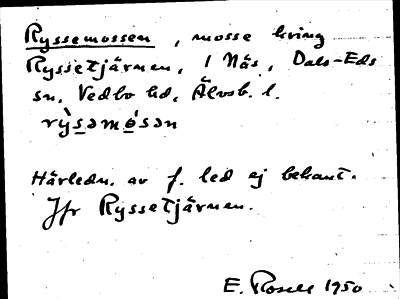 Ryssemossen, mosse kring
Ryssetjärnen, i Näs, Dals-Eds
sn, Vedbo hd, Älvsb. l.
rỳsəmósən
Härledn. av f. led ej bekant.
Jfr Ryssetjärnen.
E. Rosell 1950